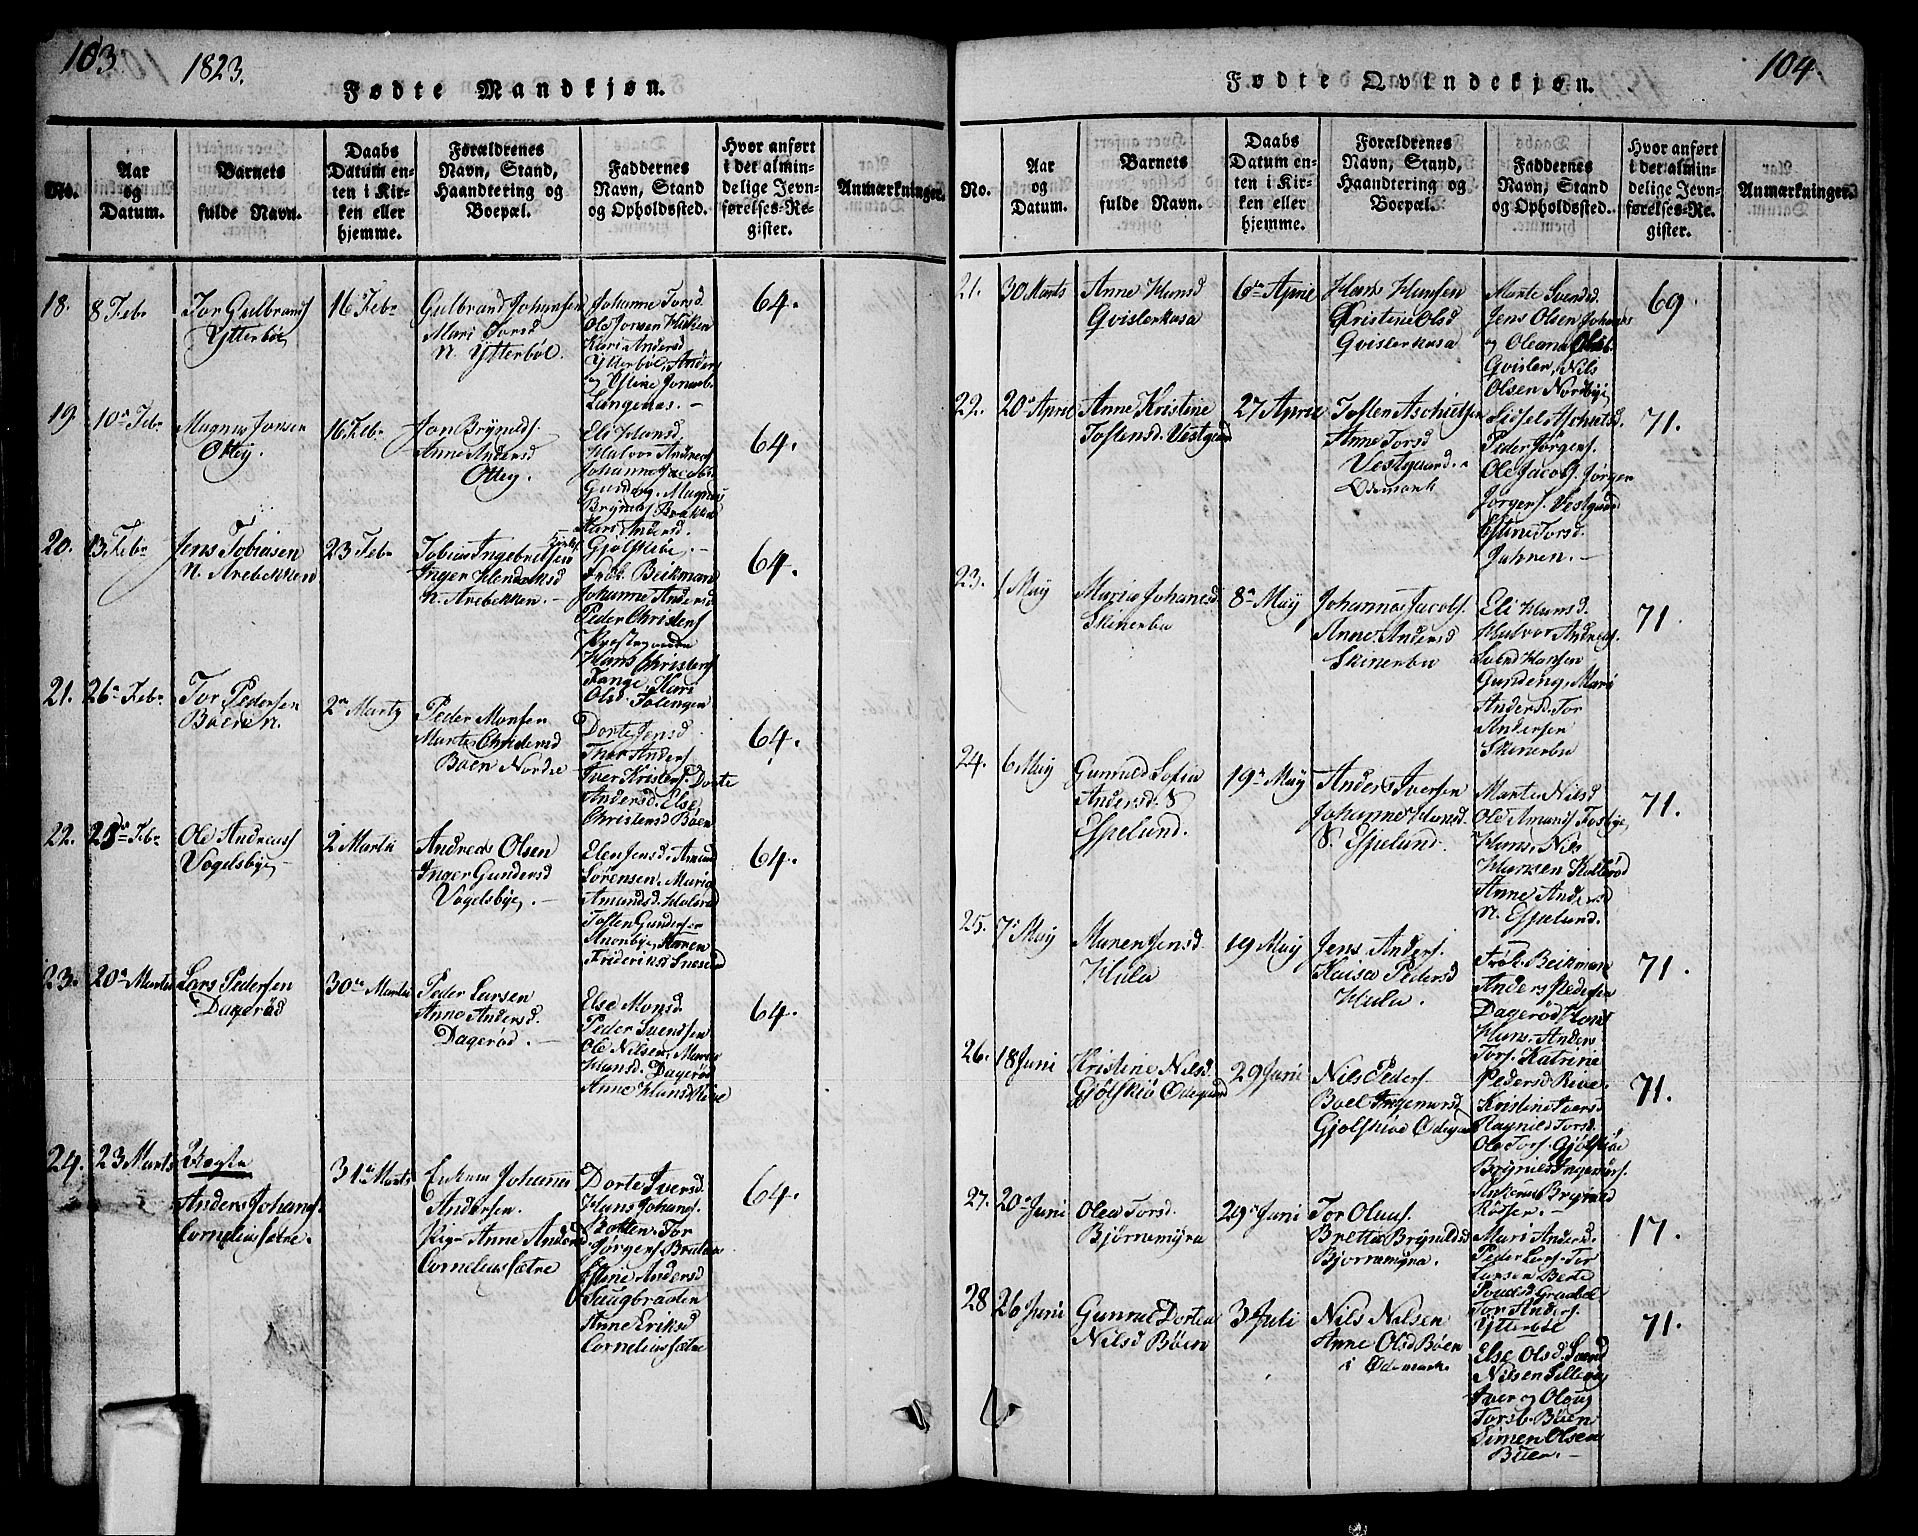 103
1823.
Fødte Mandkjøn.
No.
Aar
og
Datum.
Barnets
fulde Navn.
Daabs
Datum en-
ten i Kir-
ken eller
hjemme.
Forældrenes
Navn, Stand,
Haandtering og
Boepæl.
Faddernes
Navn, Stand
og Opholdssted.
Hvor anført
i det almin-
delige Jevn-
førelses-Re-
gister.
Anmærkninger.
18.
8 Febr
Tor Gulbrands
Ytterböl
16 Febr
Gulbrand Johansen
Mari Torsd
N. Ytterböl.
Johanne Torsd.
Ole Jorsen
Kari Andersd
Ytterböl, Anders
og Johanes
Langenæs.
64.
19.
10 Febr
Magnus Jonsen
Ottey
16 Febr
Jon Brynilds.
Anne Andersd
Ottey.
Eli Hansd.
Halvor Andreas
Johanne Jacobs
Gundeng, Magnus
Brynild Brække
Kari Andersd.
Gjølskiöe.
64.
20.
13 Febr
Jens Tobiasen
N. Arebekken
23 Febr
Tobias Ingebretsen
Inger Hendriksd
N. Arebekken.
Frøk. Beikman
Johanne Andersd
Peder Christens
Hans Christens
Tange, Kari
Olsd. Folengen
64.
21.
26 Febr
Tor Pedersen
Böen N.
2 Marty
Peder Monsen
Marte Christensd
Böen Nordre
Dorte Jensd.
Thor Anders
Iver Kristens. Dorte
Andersd. Else
Christensd Böen
64.
22.
Febr
Ole Andreas
Vogelsbye
2 Marti
Andreas Olsen
Inger Gundersd
Vogelsbye.
Elen Jensd. Amund
Sørensen, Maria
Amundsd. Holerød
Tosten Gundersen
Karen
Frideriksd
64.
23.
20 Martii
Lars Pedersen
Dagerød
30 Martii
Peder Larsen
Anne Andersd.
Dagerød.
Else Monsd.
Peder Svendsen
Ole Nilsen, Maria
Hansd. Dagerød
Anne Hansd Rive
64.
24.
23 Marts
Uægte
Anders Johans.
Corneliussætre.
31 Marts
Johannes
Andersen.
Pige Anne Andersd
Corneliussætre
Dorte Iversd.
Hans Johans.
Tor
Jørgens Braten
Andersd
Saugbraaten
Anne Eriksd
Corneliussætre
64.
104.
Fødte Qvindekjøn.
No.
Aar
og
Datum.
Barnets
fulde Navn.
Daabs
Datum en-
ten i Kir-
ken eller
hjemme.
Forældrenes
Navn, Stand,
Haandtering og
Boepæl.
Faddernes
Navn, Stand
og Opholdssted.
Hvor anført
i det almin-
delige Jevn-
førelses-Re-
gister.
Anmærkninger.
21.
30 Marts
Anne Hansd
Gvislerkasa
6 April
Hans Hansen
Kristine Olsd
Gvislerkasa
Marte Svends.
Jens Olsen Johanes
og Oleana Olsd.
Gvisler, Nils
Olsen Nordbye
69
22.
20 April
Anne Kristine
Tostensd. Vestgaard
27 April
Tosten Aschielsen
Anne Torsd
Vestgaard.
Ødemark
Peder Jørgens.
Ole Jacobs. Jørgen
Jørgens. Vestgaard
Torsd.
Jahren.
71.
23.
1 May
Maria Johanesd
Skinerbu
8 May
Johannes Jacobs.
Anne Andersd
Skinerbu
Eli Hansd.
Halvor Andreas.
Svend Hansen
Gundeng, Mari
Andersd. Tor
Andersen
Skinerbu
71.
24.
6 May
Gunnild Sofia
Andersd. S
Espelund.
19 May
Anders Iversen
Johanne Hansd.
S. Espelund.
Marte Nilsd
Ole Amunds
Hans, Nils
Hansen Kolterød
Anne Andersd
N. Espelund.
71.
25.
7 May
Maren Jensd.
Hula
19 May
Jens Anders.
Kaisa Pedersd
Hula.
Frøk. Beikman
Anders Pedersen
Dagerød
Hans. Anders
Tors. Katrine
Pedersd Rive.
71.
26.
18 Juni
Kristine Nilsd.
Gjølskiö Ødegaard
29 Juni
Nils Peders.
Boel Ingemorsd
Gjölskiöe Ødegaard
Kristine Iversd
Ragnild Torsd.
Ole Tors. Gjølskiöe
Brynild Ingemors.
Brynild
71.
27.
20 Juni
Olea Torsd.
Bjørnemyra
29 Juni
Tor Oluus.
Bretta Brynildsd
Bjørnemyra.
Mari Andersd.
Peder Lars. Tor
Larsen Berte
Tor Anders.
Ytterböl
17.
28
26 Juni
Gunrad Dortea
Nilsd Böen
3 Juli
Nils Nilsen
Anne Olsd Böen
i Ødemark
Else Olsd. Svend
Nilsen
Iver og Olaus
Torsb. Böen
Simen Olsen
Böen.
71.